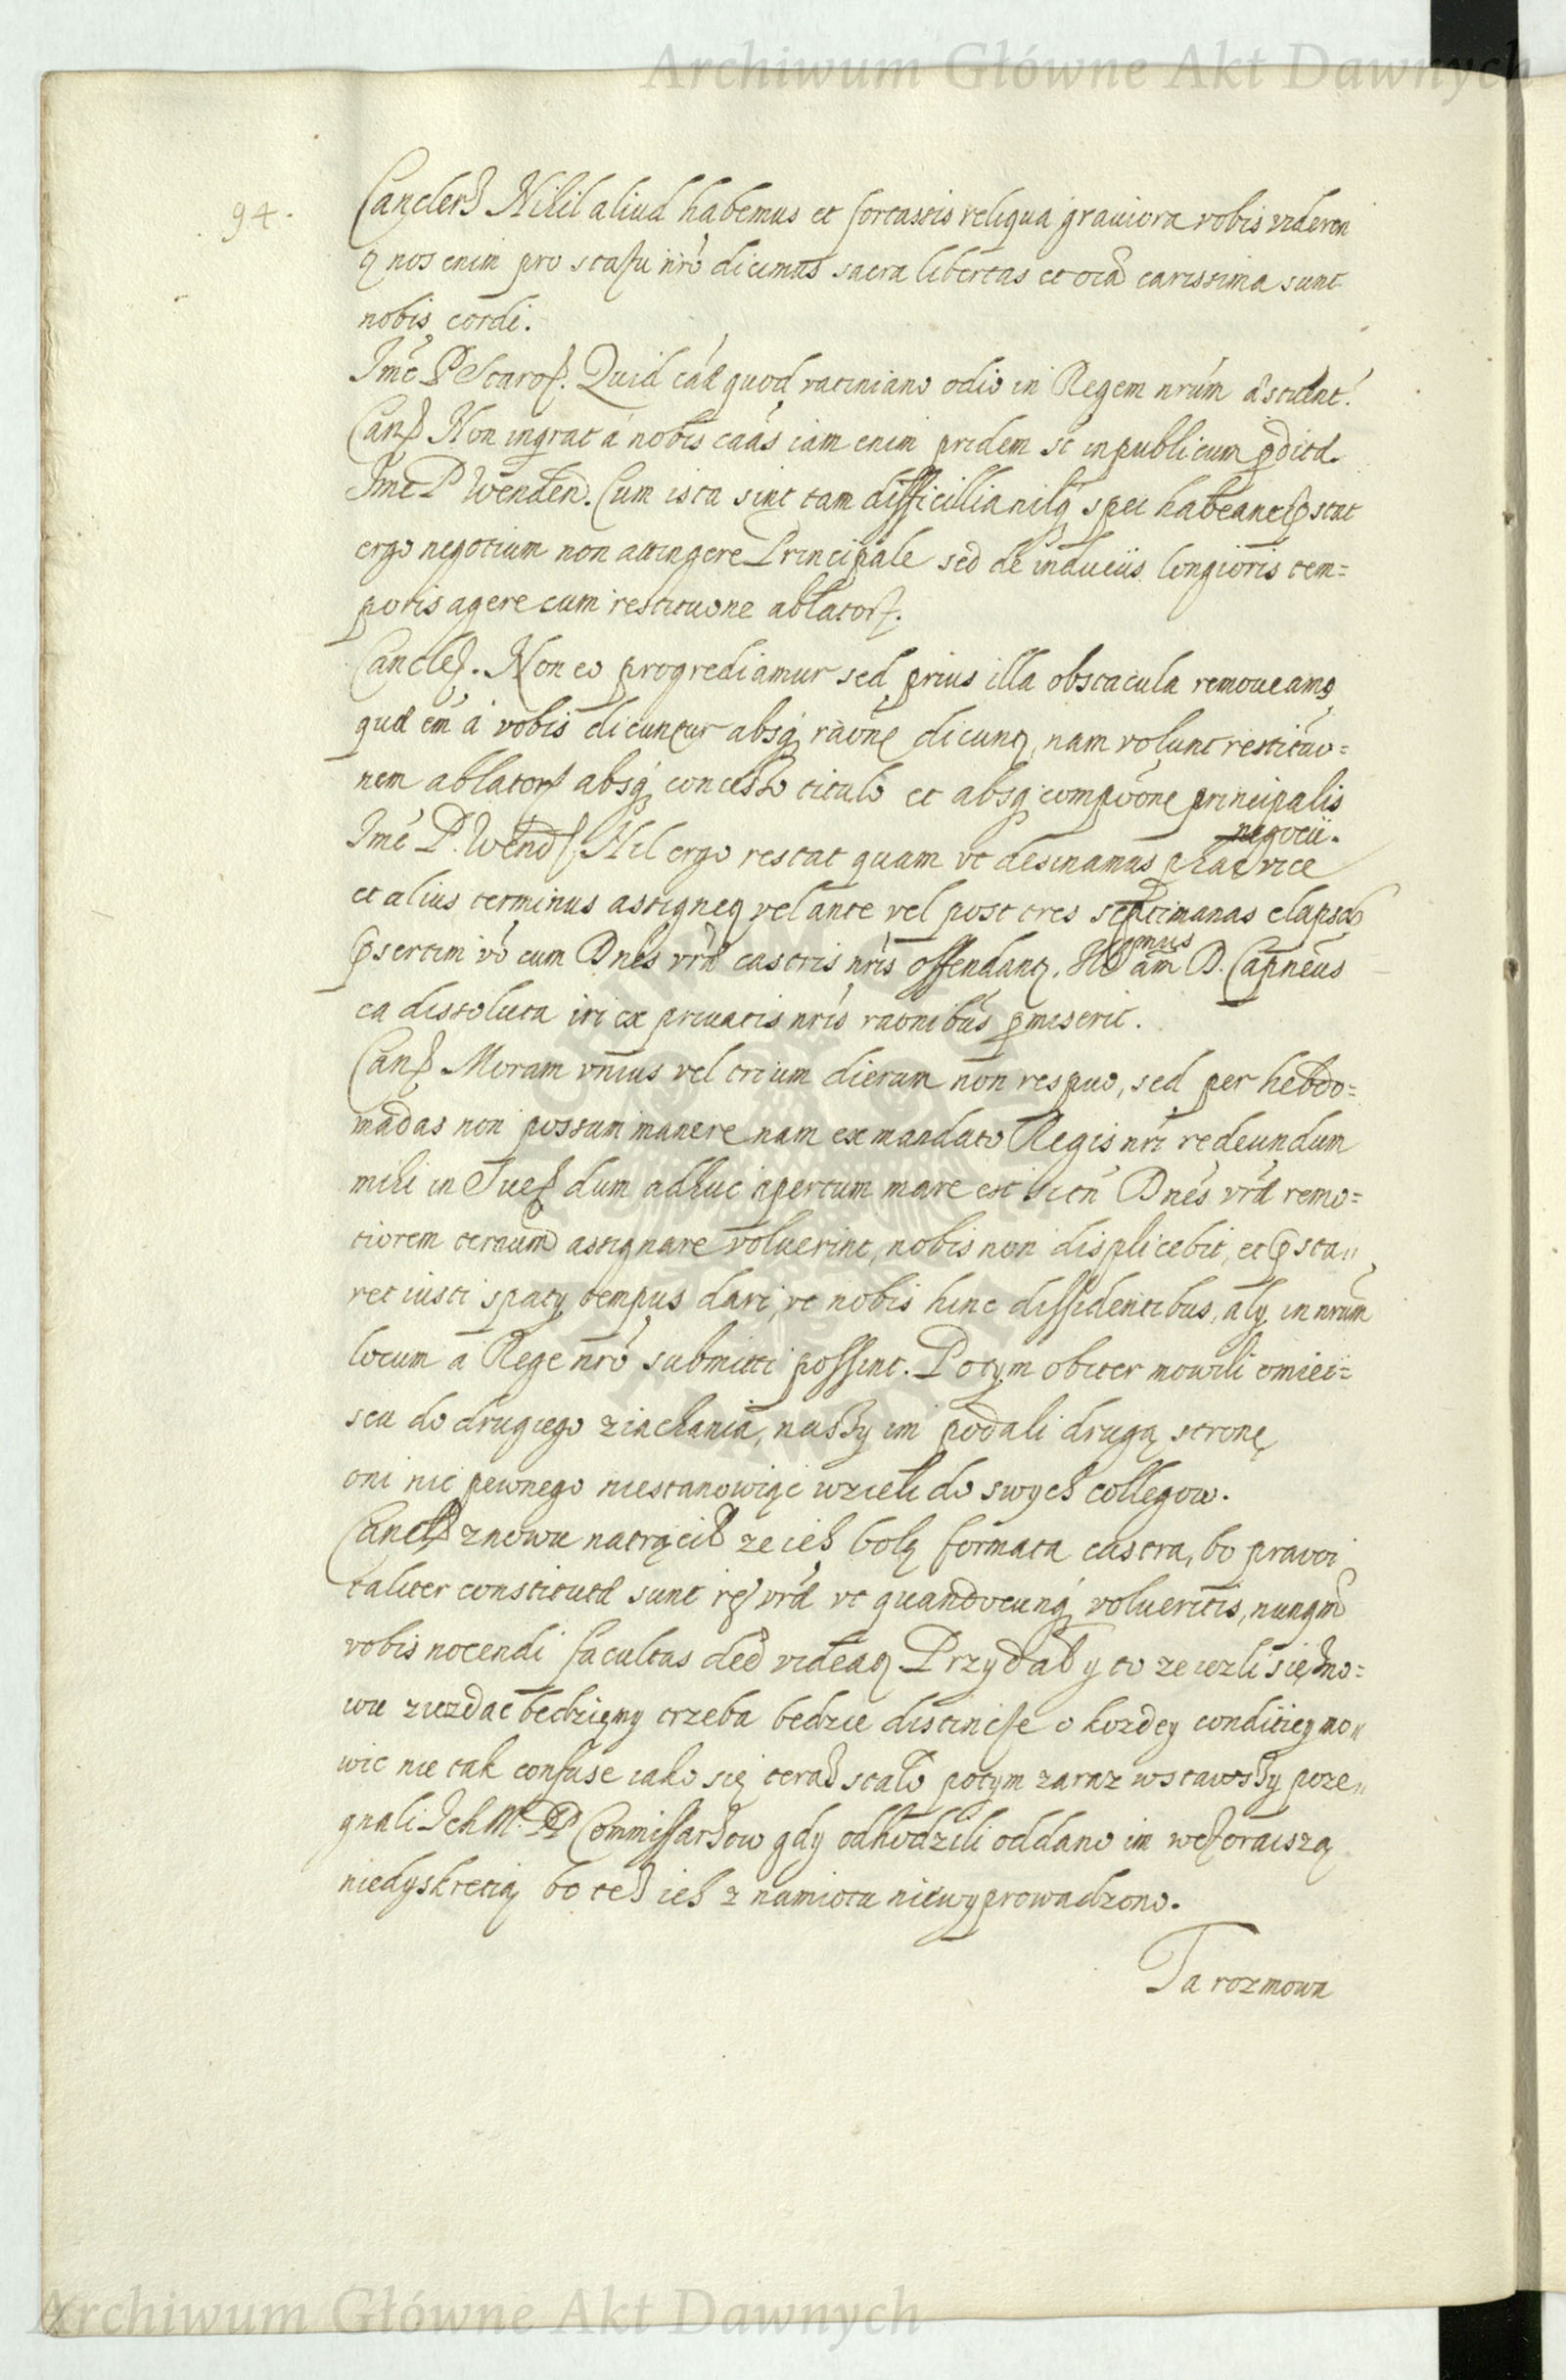 Archiwum Główne Akt Dawnych
94.
Canclerz Nihil aliud habemus et fortassis reliqua graviora vobis videren
q nos enim pro statu nro dicimus sacra libertas et oia carissima sunt
nobis cordi.
Jmc P Staros. Quid cae quod vatiniano odio in Regem nrum
Canc Non ingrat a nobis caas iam enim pridem st in publicum
Jmc P Wenden. Cum ista sint tam difficillia nilq spei habeant pstat
ergo negotium non attingere Principale sed de induciis longioris tem=
poris agere cum restituone ablator.
Cancle. Non eo progrediamur sed prius illa obstacula removeamq
em a vobis dicuntur absq raone dicunt, nam volunt restituo=
nem ablator absq concesso titulo et absq compoone principalis
negocii.
Jmc P. Wend. Nil ergo restat quam vt desinamus hac vice
et alius terminus assigneq vel ante vel post tres septimanas elapsas
psertim vo cum Dnes vrae castris nris offendanq.
omus
am D. Capneus
ea dissoluta iri ex privatis nris raonibus pmiserit.
Canc Moram vnius vel trium dierum non respuo, sed per hebdo=
madas non possum manere nam ex mandato Regis nri redeundum
mihi in Suec dum adhuc apertum mare est Dnes vrae remo=
tiorem assignare voluerint, nobis non displicebit, et psta„
ret iusti spaty tempus dari, vt nobis hinc dissidentibus, aly in nrum
locum a Rege nro submitti possint. Potym obiter mowili omiei=
scu do drugiego ziachania, naszy im podali drugą stronę,
oni nic pewnego niestanowiąc wzieli do swych collegow.
Cancl znowu natrącił ze ich bolą formata castra, bo prawi
taliter constituta sunt vra vt quandocunq volueritis, nunqm
vobis nocendi facultas videaq Przydał y to ze iezli się zno=
wu ziezdac będziemy trzeba bedzie distincte o kozdey conditiey mo„
wic nie tak confuse iako się teraz stało potym zaraz wstawszy poze„
gnali Ich M. PP Commissarzow gdy odhodzili oddano im wczoraiszą
niedyskretią bo tez ich z namiotu niewyprowadzono.
Ta rozmowa
Archiwum Główne Akt Dawnych